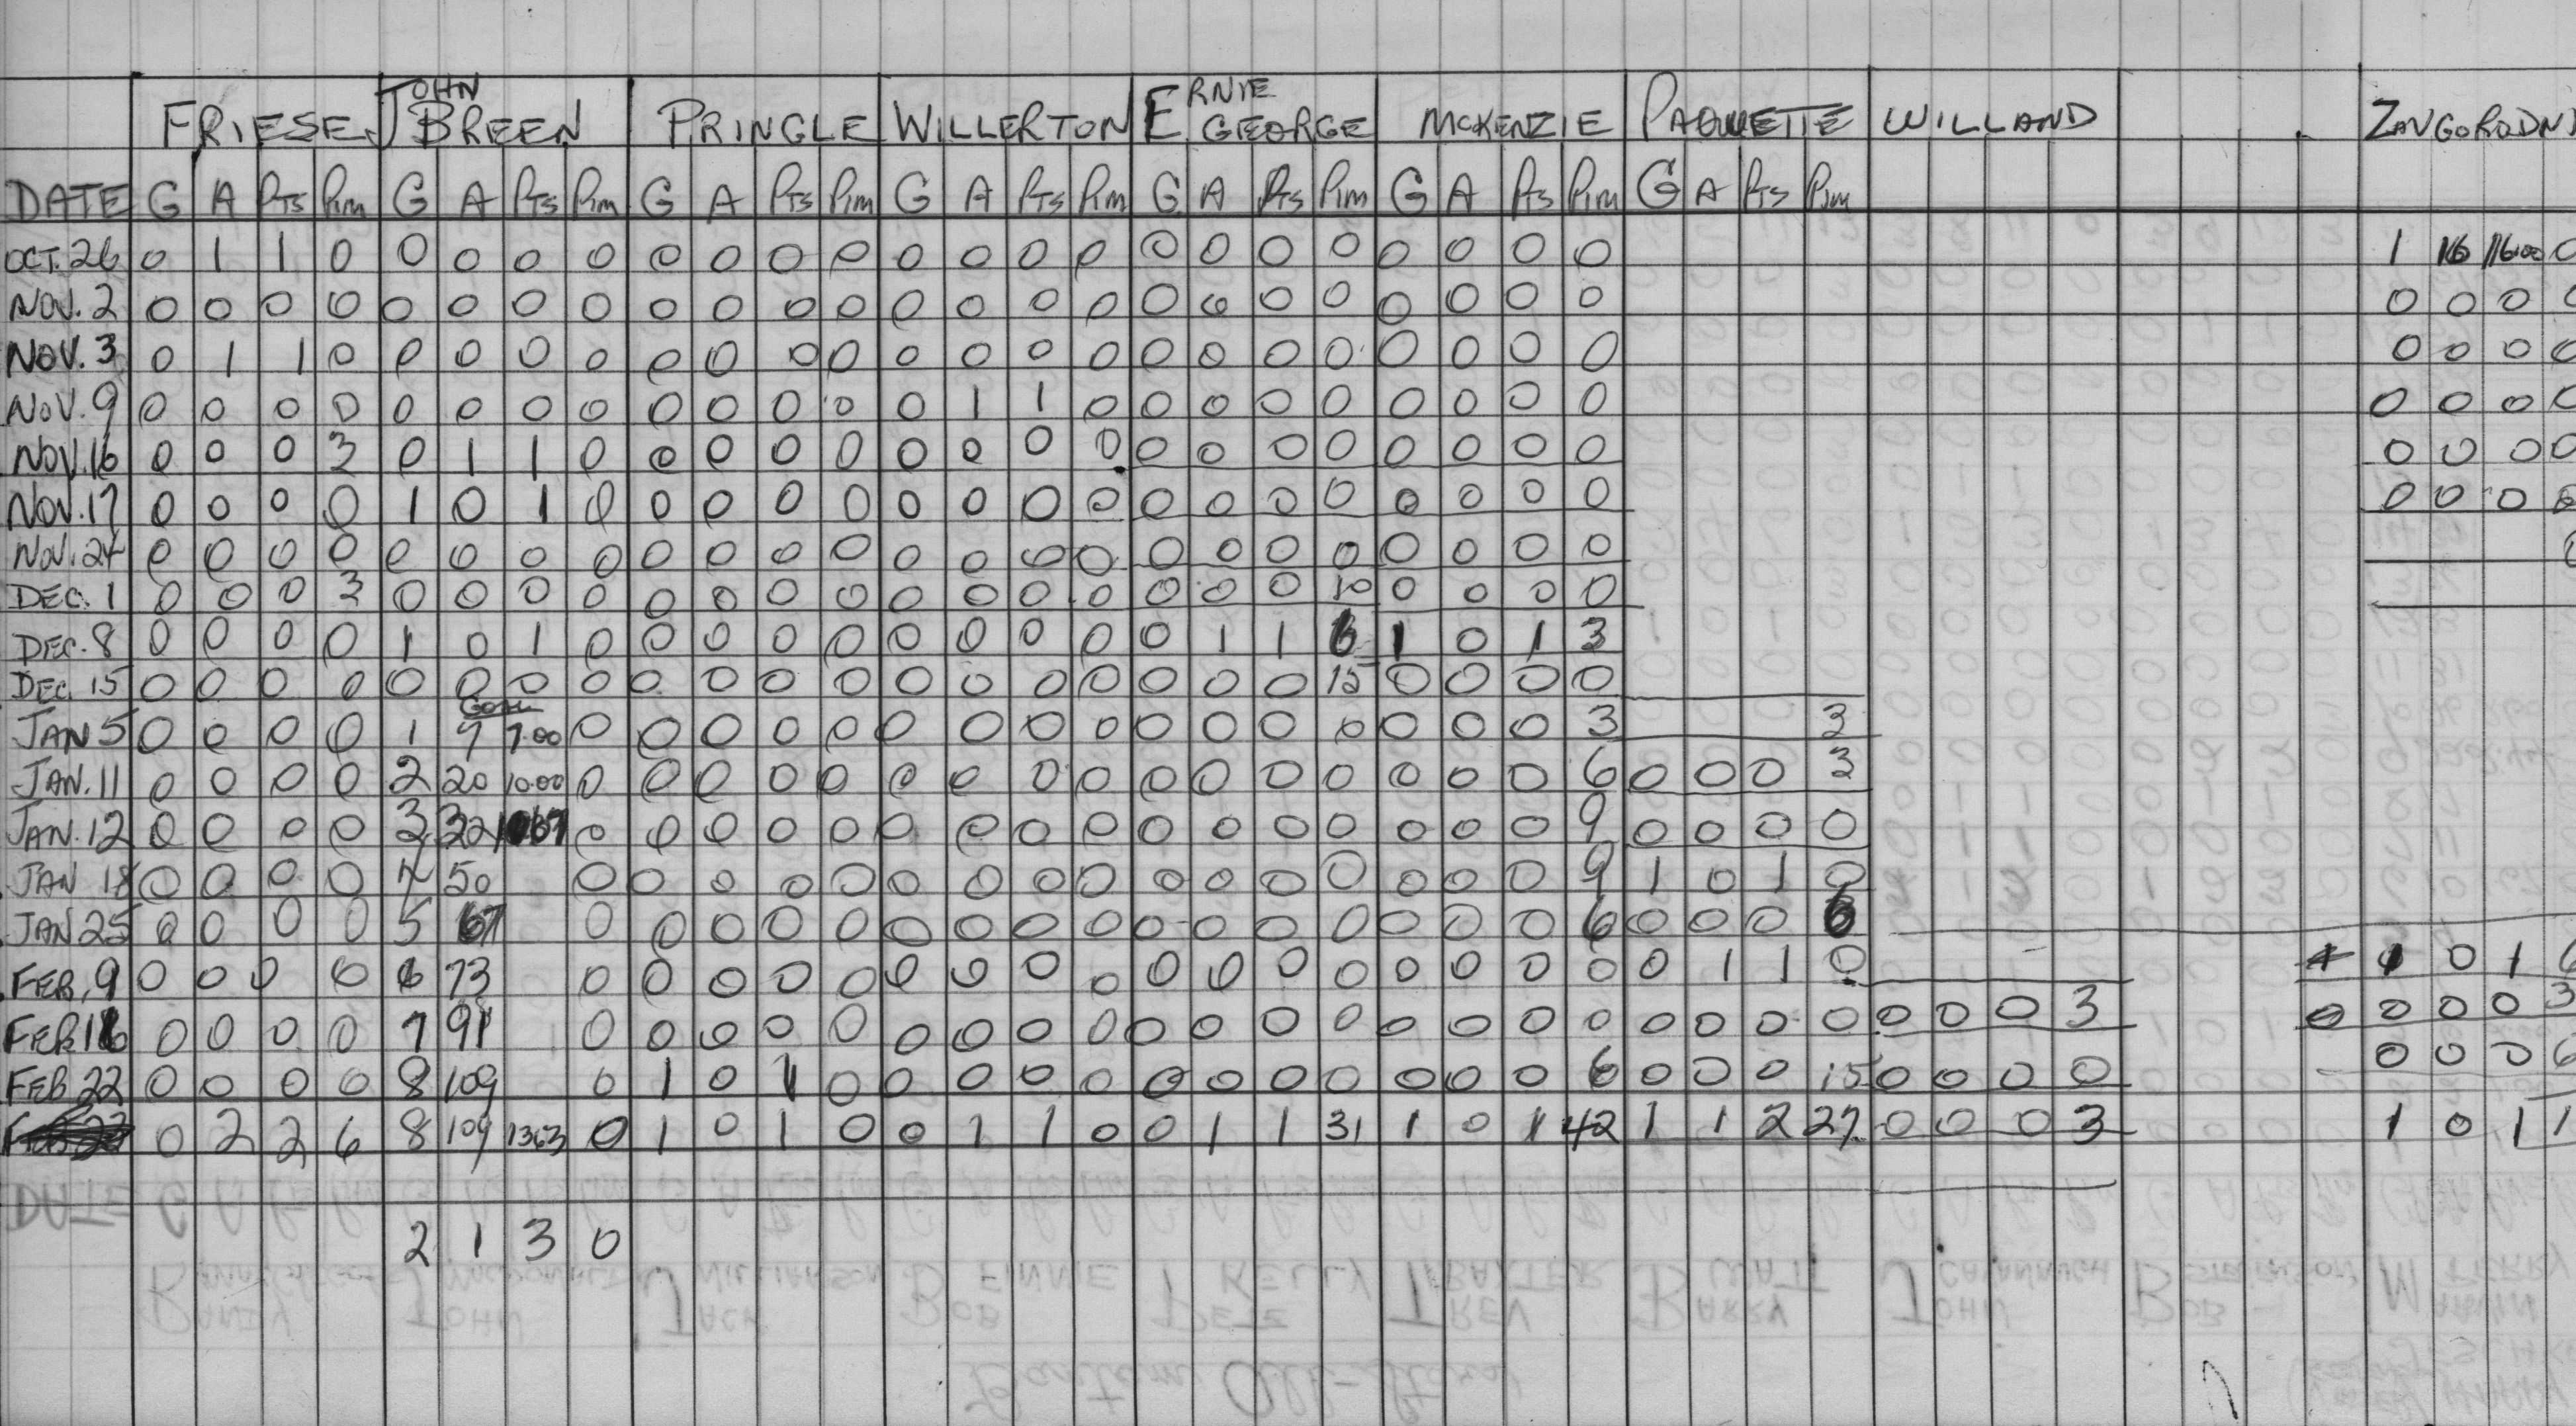 FRIESE JOHN BREEN PRINGLE WILLERTON ERNIE GEORGE MCKENZIE PAQUETTE WILLAND ZAVGORODNI
DATE G A Pts Pim G A Pts Pim G A Pts Pim G A Pts Pim G A Pts Pim G A Pts Pim G A Pts Pim
OCT. 26 0 1 1 0 0 0 0 0 0 0 0 0 0 0 0 0 0 0 0 0 0 0 0 0 1 16 16.00 0
NOV. 2 0 0 0 0 0 0 0 0 0 0 0 0 0 0 0 0 0 0 0 0 0 0 0 0 0 0 0 0
NOV. 3 0 1 1 0 0 0 0 0 0 0 0 0 0 0 0 0 0 0 0 0 0 0 0 0 0 0 0 0
NOV. 9 0 0 0 0 0 0 0 0 0 0 0 0 0 1 1 0 0 0 0 0 0 0 0 0 0 0 0 0
NOV. 16 0 0 0 3 0 1 1 0 0 0 0 0 0 0 0 0 0 0 0 0 0 0 0 0 0 0 0 0
NOV. 17 0 0 0 0 1 0 1 0 0 0 0 0 0 0 0 0 0 0 0 0 0 0 0 0 0 0 0 0
NOV. 24 0 0 0 0 0 0 0 0 0 0 0 0 0 0 0 0 0 0 0 0 0 0 0 0 0
DEC. 1 0 0 0 3 0 0 0 0 0 0 0 0 0 0 0 0 0 0 0 10 0 0 0 0
DEC. 8 0 0 0 0 1 0 1 0 0 0 0 0 0 0 0 0 0 1 1 6 1 0 1 3
DEC. 15 0 0 0 0 0 0 0 0 0 0 0 0 0 0 0 0 0 0 0 15 0 0 0 0
JAN 5 0 0 0 0 1 7 7.00 0 0 0 0 0 0 0 0 0 0 0 0 0 0 0 0 3 3
JAN. 11 0 0 0 0 2 20 10.00 0 0 0 0 0 0 0 0 0 0 0 0 0 0 0 0 6 0 0 0 3
JAN. 12 0 0 0 0 3 32 1067 0 0 0 0 0 0 0 0 0 0 0 0 0 0 0 0 9 0 0 0 0
JAN 18 0 0 0 0 4 50 0 0 0 0 0 0 0 0 0 0 0 0 0 0 0 0 9 1 0 1 0
JAN 25 0 0 0 0 5 67 0 0 0 0 0 0 0 0 0 0 0 0 0 0 0 0 6 0 0 0 6
FEB. 9 0 0 0 0 6 73 0 0 0 0 0 0 0 0 0 0 0 0 0 0 0 0 0 0 1 1 0 1 0 1 6
FEB 16 0 0 0 0 7 91 0 0 0 0 0 0 0 0 0 0 0 0 0 0 0 0 0 0 0 0 0 0 0 0 3 0 0 0 0 3
FEB 22 0 0 0 0 8 109 0 1 0 1 0 0 0 0 0 0 0 0 0 0 0 0 6 0 0 0 15 0 0 0 0 0 0 0 6
0 2 2 6 8 109 1363 0 1 0 1 0 0 1 1 0 0 1 1 31 1 0 1 42 1 1 2 27 0 0 0 3 1 0 1 1
2 1 3 0